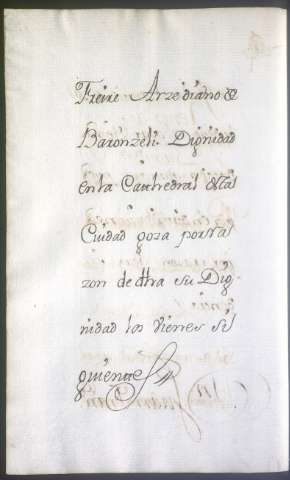 Freire Arzediano de
Baronzeli Dignidad
en la Cathedral de las
Ciudad goza por rra
zon de dha su Dig-
nidad los vienes si
guientes